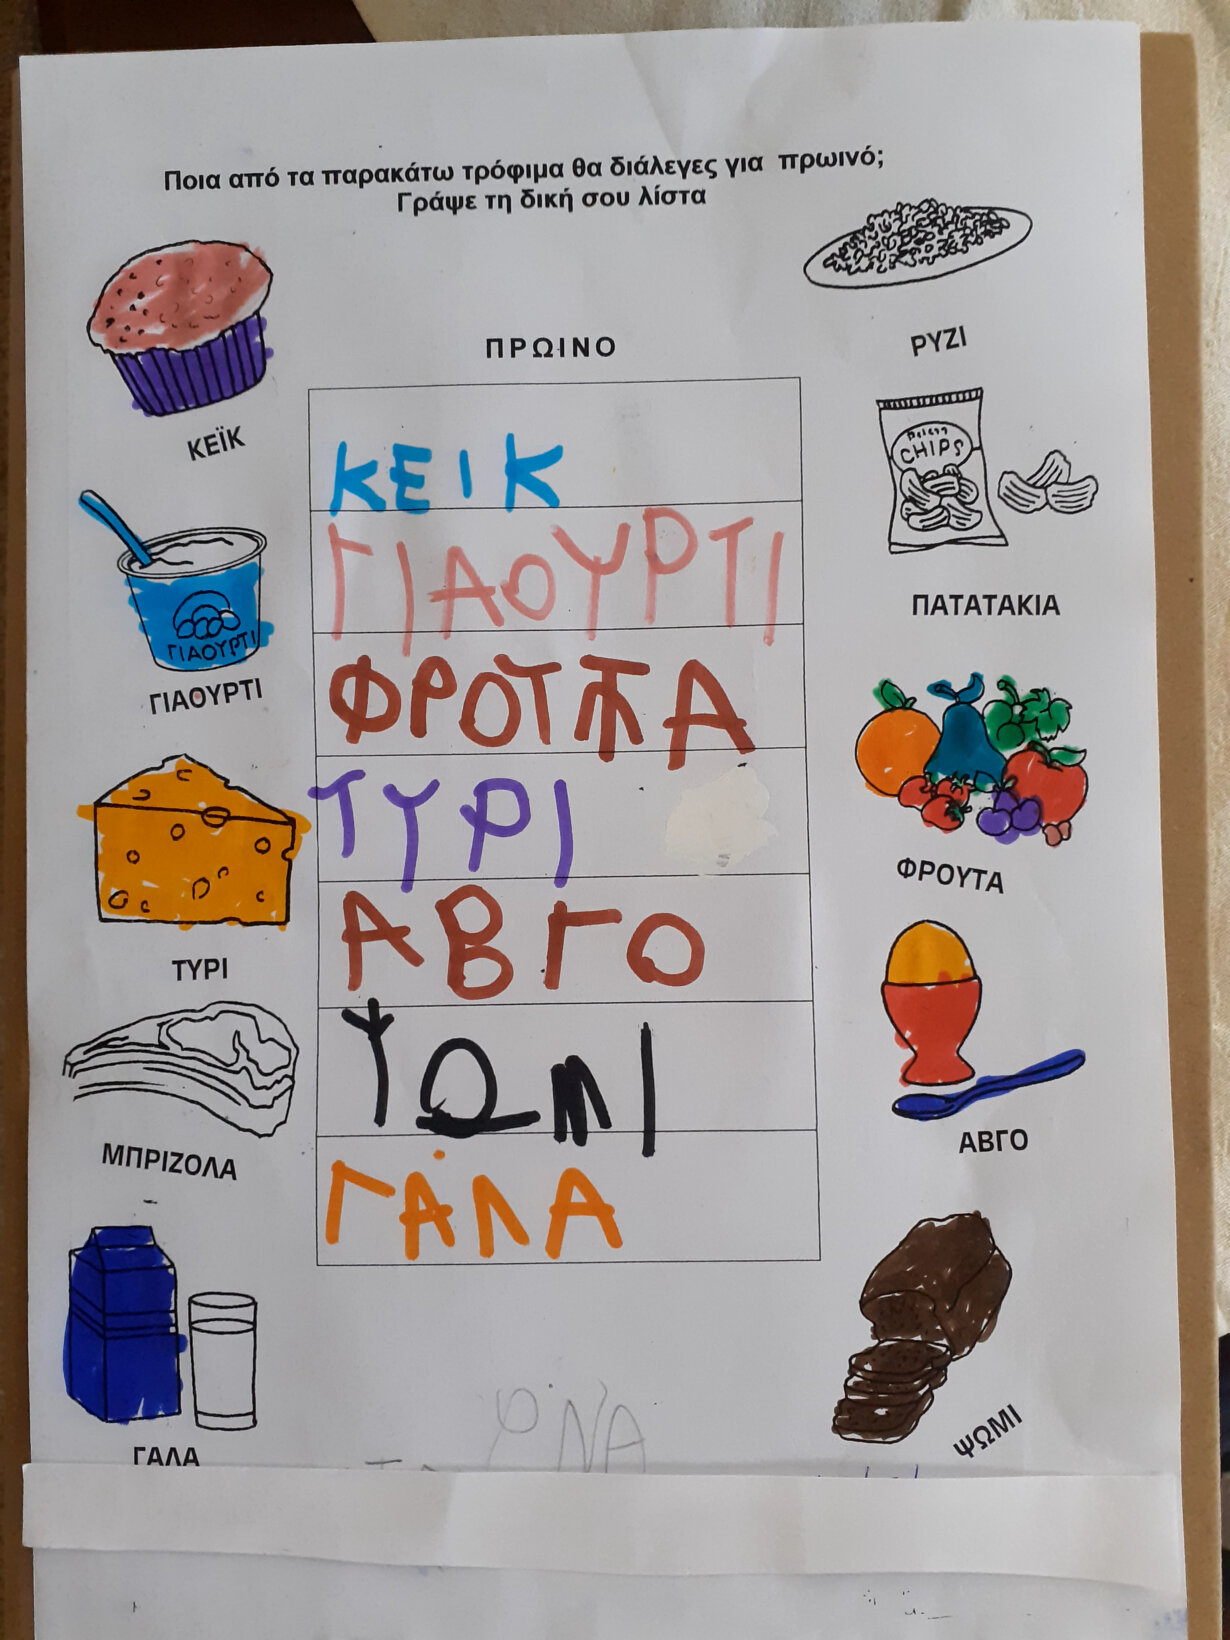 Ποια από τα παρακάτω τρόφιμα θα διάλεγες για πρωινό;
Γράψε τη δική σου λίστα
ΠΡΩΙΝΟ
ΚΕΪΚ
ΓΙΑΟΥΡΤΙ
ΓΙΑΟΥΡΤΙ
ΤΥΡΙ
ΜΠΡΙΖΟΛΑ
ΓΑΛΑ
ΚΕΙΚ
ΓΙΑΟΥΡΤΙ
ΤΥΡΙ
ΑΒΓΟ
ΨΩΜΙ
ΓΑΛΑ
ΡΥΖΙ
CHIPS
ΠΑΤΑΤΑΚΙΑ
ΦΡΟΥΤΑ
ΑΒΓΟ
ΨΩΜΙ